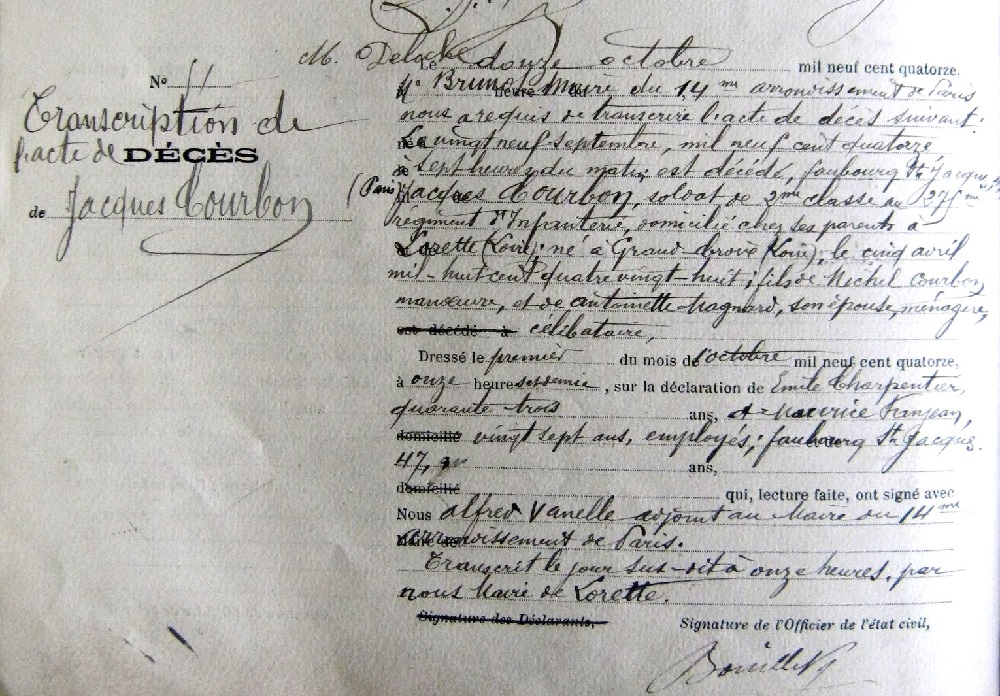 M. Deloche
Le douze octobre mil neuf cent quatorze.
Bruno Maire du 14me arrondissement de Paris
nous a requis de transcrire l'acte de décès suivant :
Le vingt neuf septembre, mil neuf cent quatorze
à sept heures du matin est décédé, faubourg St Jacques,
(Paris) Jacques Courbon, soldat de 2me classe au 275me
régiment d'Infanterie, domicilié chez ses parents à
Lorette (Loire); né à Grand-Croix (Loire), le cinq avril
mil-huit cent quatre vingt-huit; fils de Michel Courbon,
manœuvre, et de antoinette Magnard, son épouse, ménagère,
est décédé à célibataire,
Dressé le premier du mois de d'octobre mil neuf cent quatorze,
à onze heures et demie, sur la déclaration de Emile Charpentier,
quarante trois ans, & Maurice
domicilié vingt sept ans, employés; faubourg St Jacques.
47, ans,
domicilié qui, lecture faite, ont signé avec
Nous alfred Vanelle adjoint au Maire du 14me
arrondissement de Paris.
Transcrit le jour sus-dit à onze heures, par
nous Maire de Lorette.
Signature des Déclarants, Signature de l'Officier de l'état civil,
No 11
Transcription de
l'acte de DÉCÈS
de Jacques Courbon